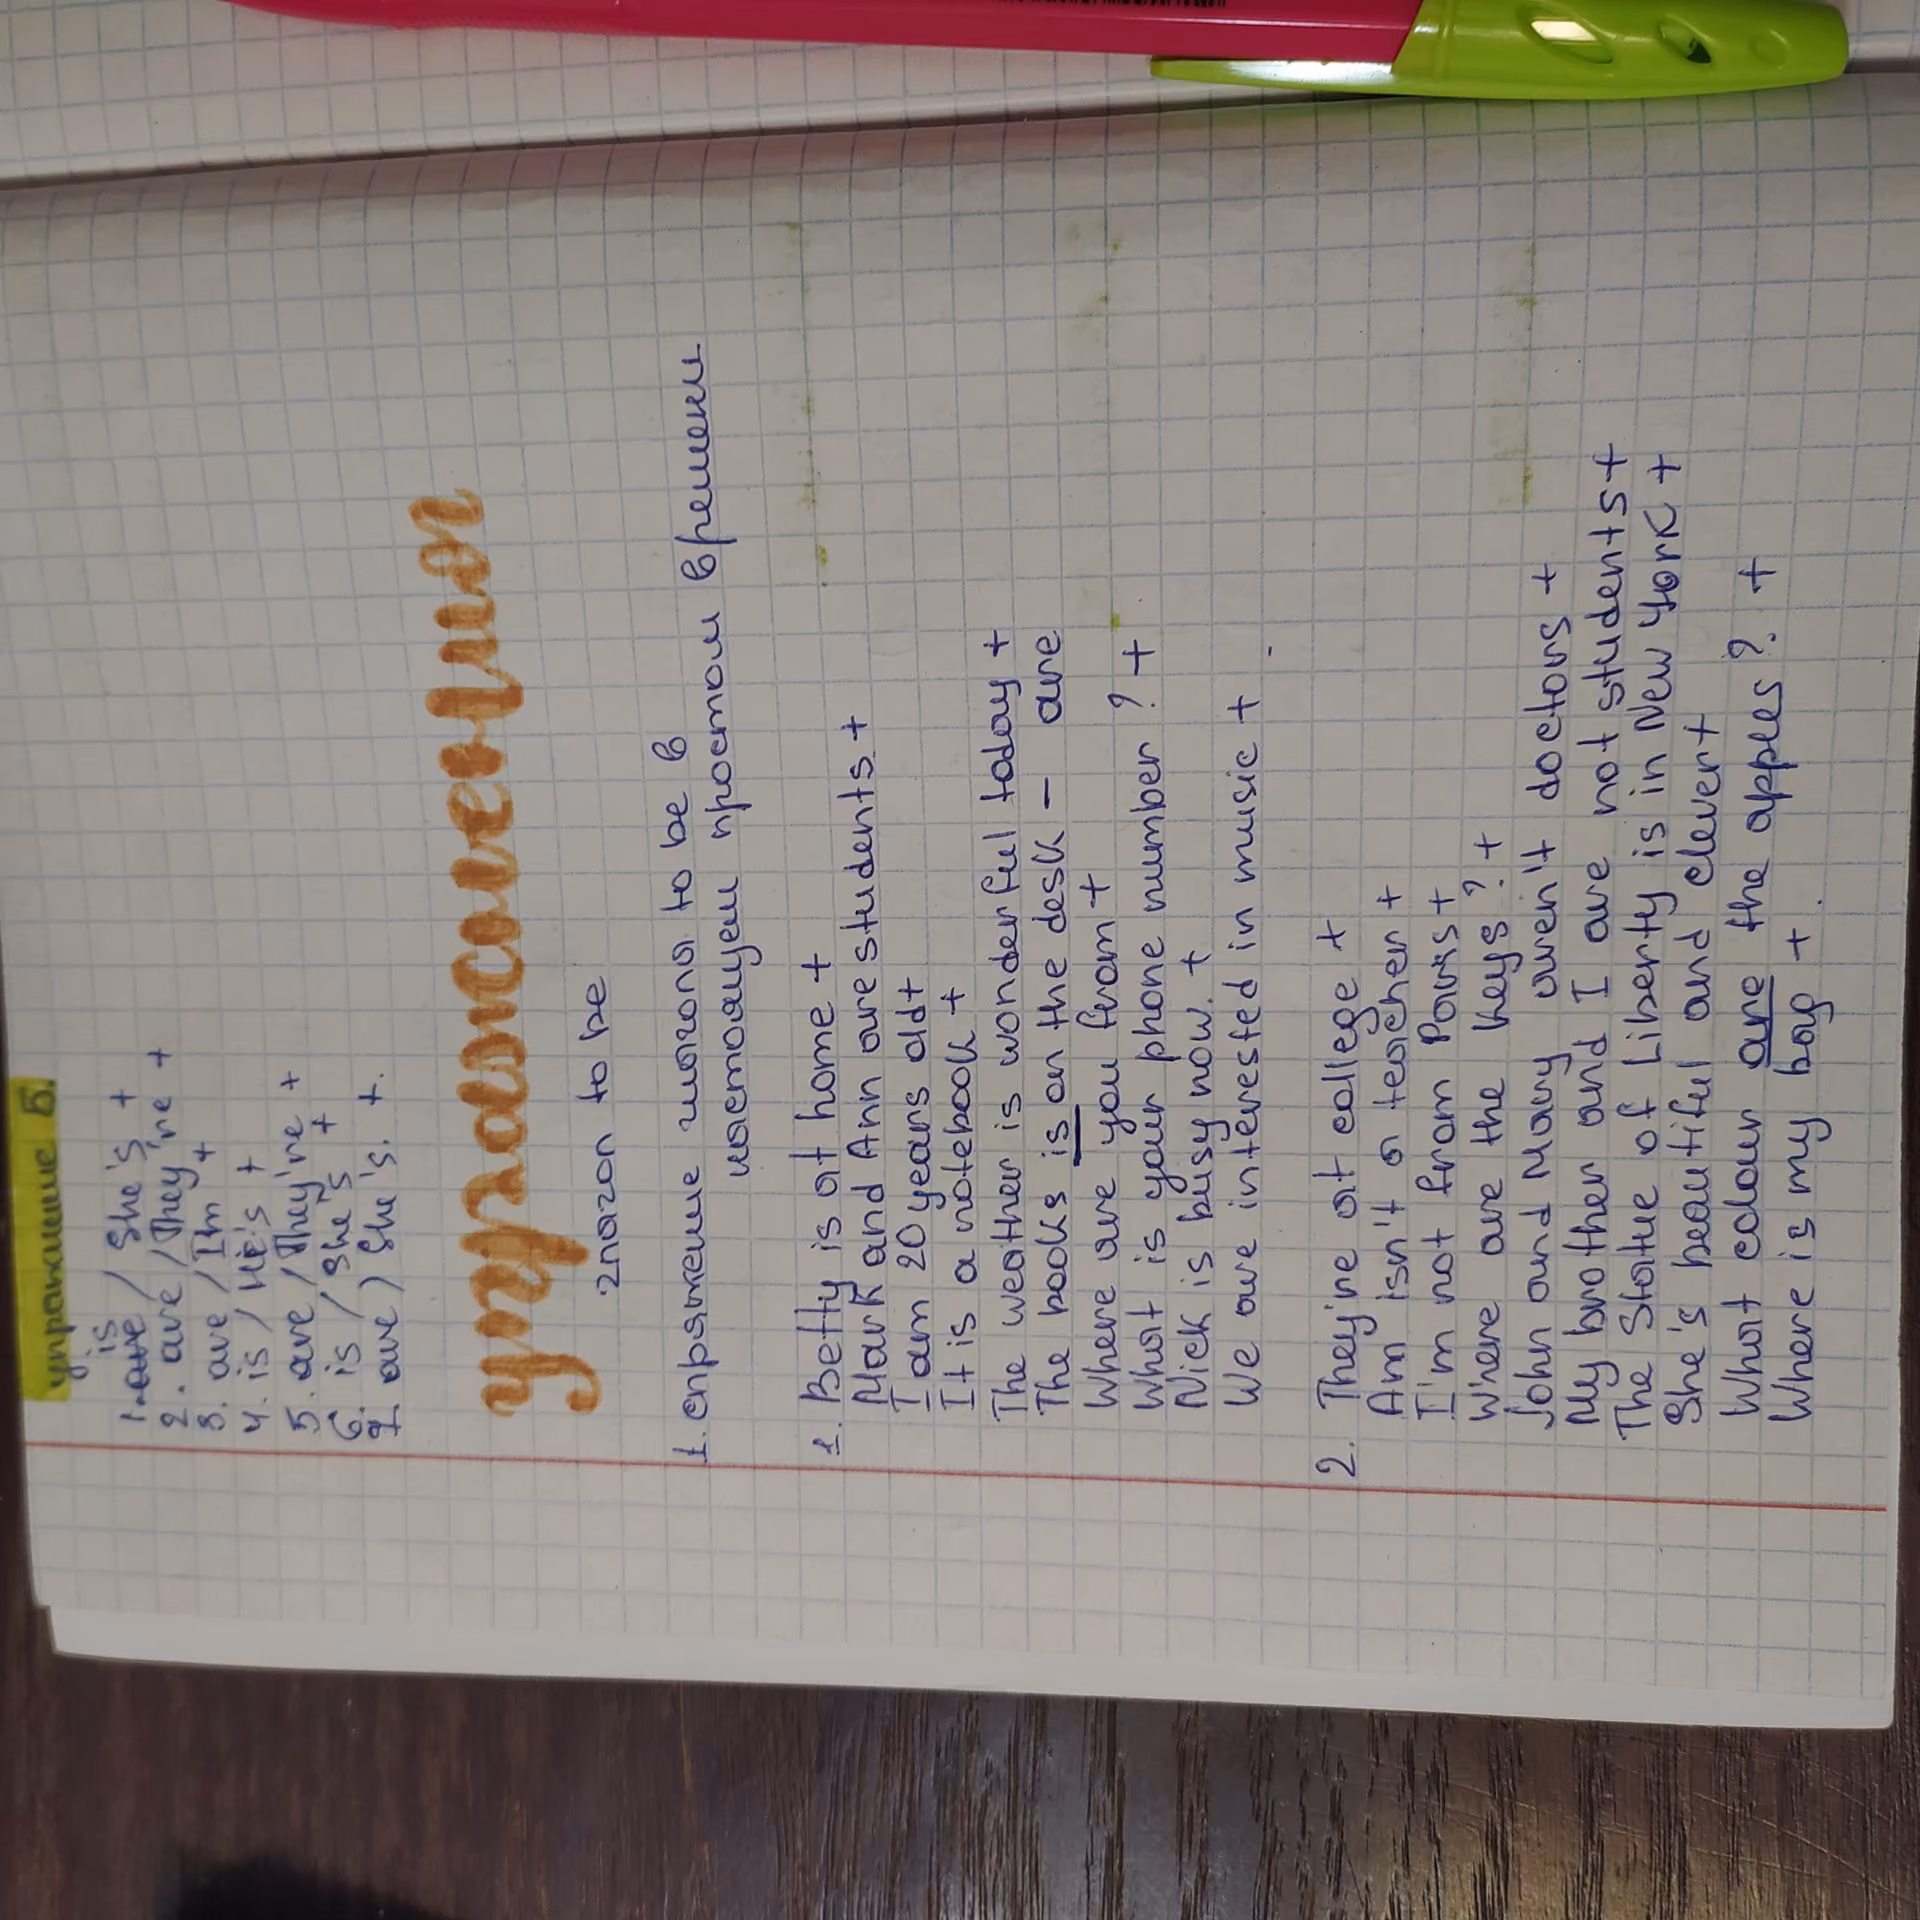 упражнение 5.
is
1. are / She's +
2. are / They're +
3. are / Im +
4. is / He's +
5. are / They're +
6. is / She's +
7. are / She's. +
упражнения
глагол to be
1. спряжение глагола to be в
настоящем простом времени
1. Betty is at home +
Mark and Ann are students +
I am 20 years old +
It is a notebook +
The weather is wonderful today +
The books is on the desk - are
Where are you from +
What is your phone number? +
Nick is busy now. +
We are interested in music +
2. They're at college +
Ann isn't a teacher +
I'm not from Paris +
Where are the keys? +
John and Mary aren't doctors +
My brother and I are not students +
The Statue of Liberty is in New York +
She's beautiful and clever +
What colour are the apples? +
Where is my bag +